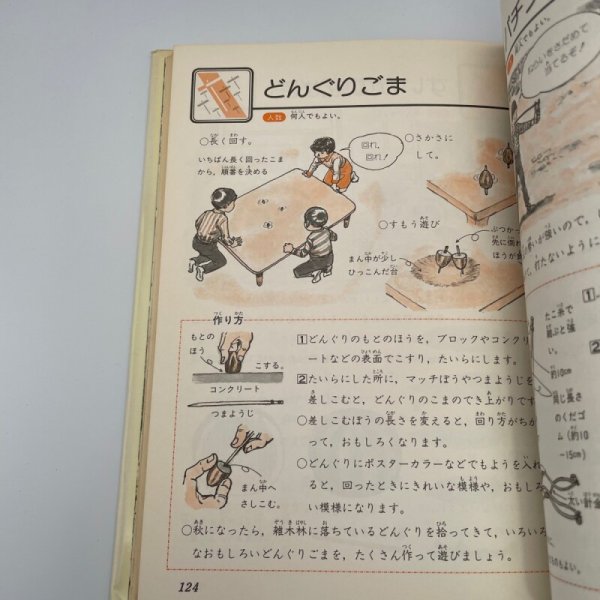 どんぐりごま
人数 何人でもよい。
○長く回す。
いちばん長く回ったこま
から、順番を決める
回れ、
回れ!
○さかさに
して。
○すもう遊び
まん中が少し
ひっこんだ台
ぶつかっ
先に倒れ
ほうが負
作り方
もとの
ほう
こする。
コンクリート
つまようじ
まん中へ
さしこむ。
1 どんぐりのもとのほうを、ブロックやコンクリ
ートなどの表面でこすり、たいらにします。
2 たいらにした所に、マッチぼうやつまようじを
差しこむと、どんぐりのこまのでき上がりです
○差しこむぼうの長さを変えると、回り方がちが
って、おもしろくなります。
○どんぐりにポスターカラーなどでもようを入れ
ると、回ったときにきれいな模様や、おもしろ
い模様になります。
○秋になったら、雑木林に落ちているどんぐりを拾ってきて、いろいろ
なおもしろいどんぐりごまを、たくさん作って遊びましょう。
124
パチン
何人でもよい。
ねらいをさだめて
当てるぞ!
いが強いので、
打たないように
たこ糸で
結ぶと強
い。
約10cm
同じ長さ
のくだゴ
ム(約10
~15cm)
太い針金